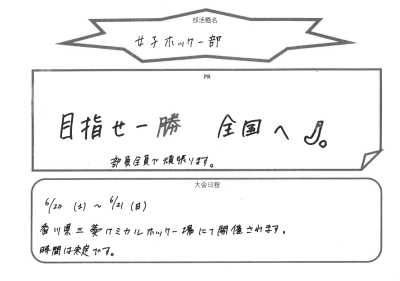 部活動名
女子ホッケー部
PR
目指せ一勝 全国へ
部員全員で頑張ります。
大会日程
6/20 (土) ~ 6/21 (日)
香川県三菱ケミカルホッケー場にて開催されます。
時間は未定です。